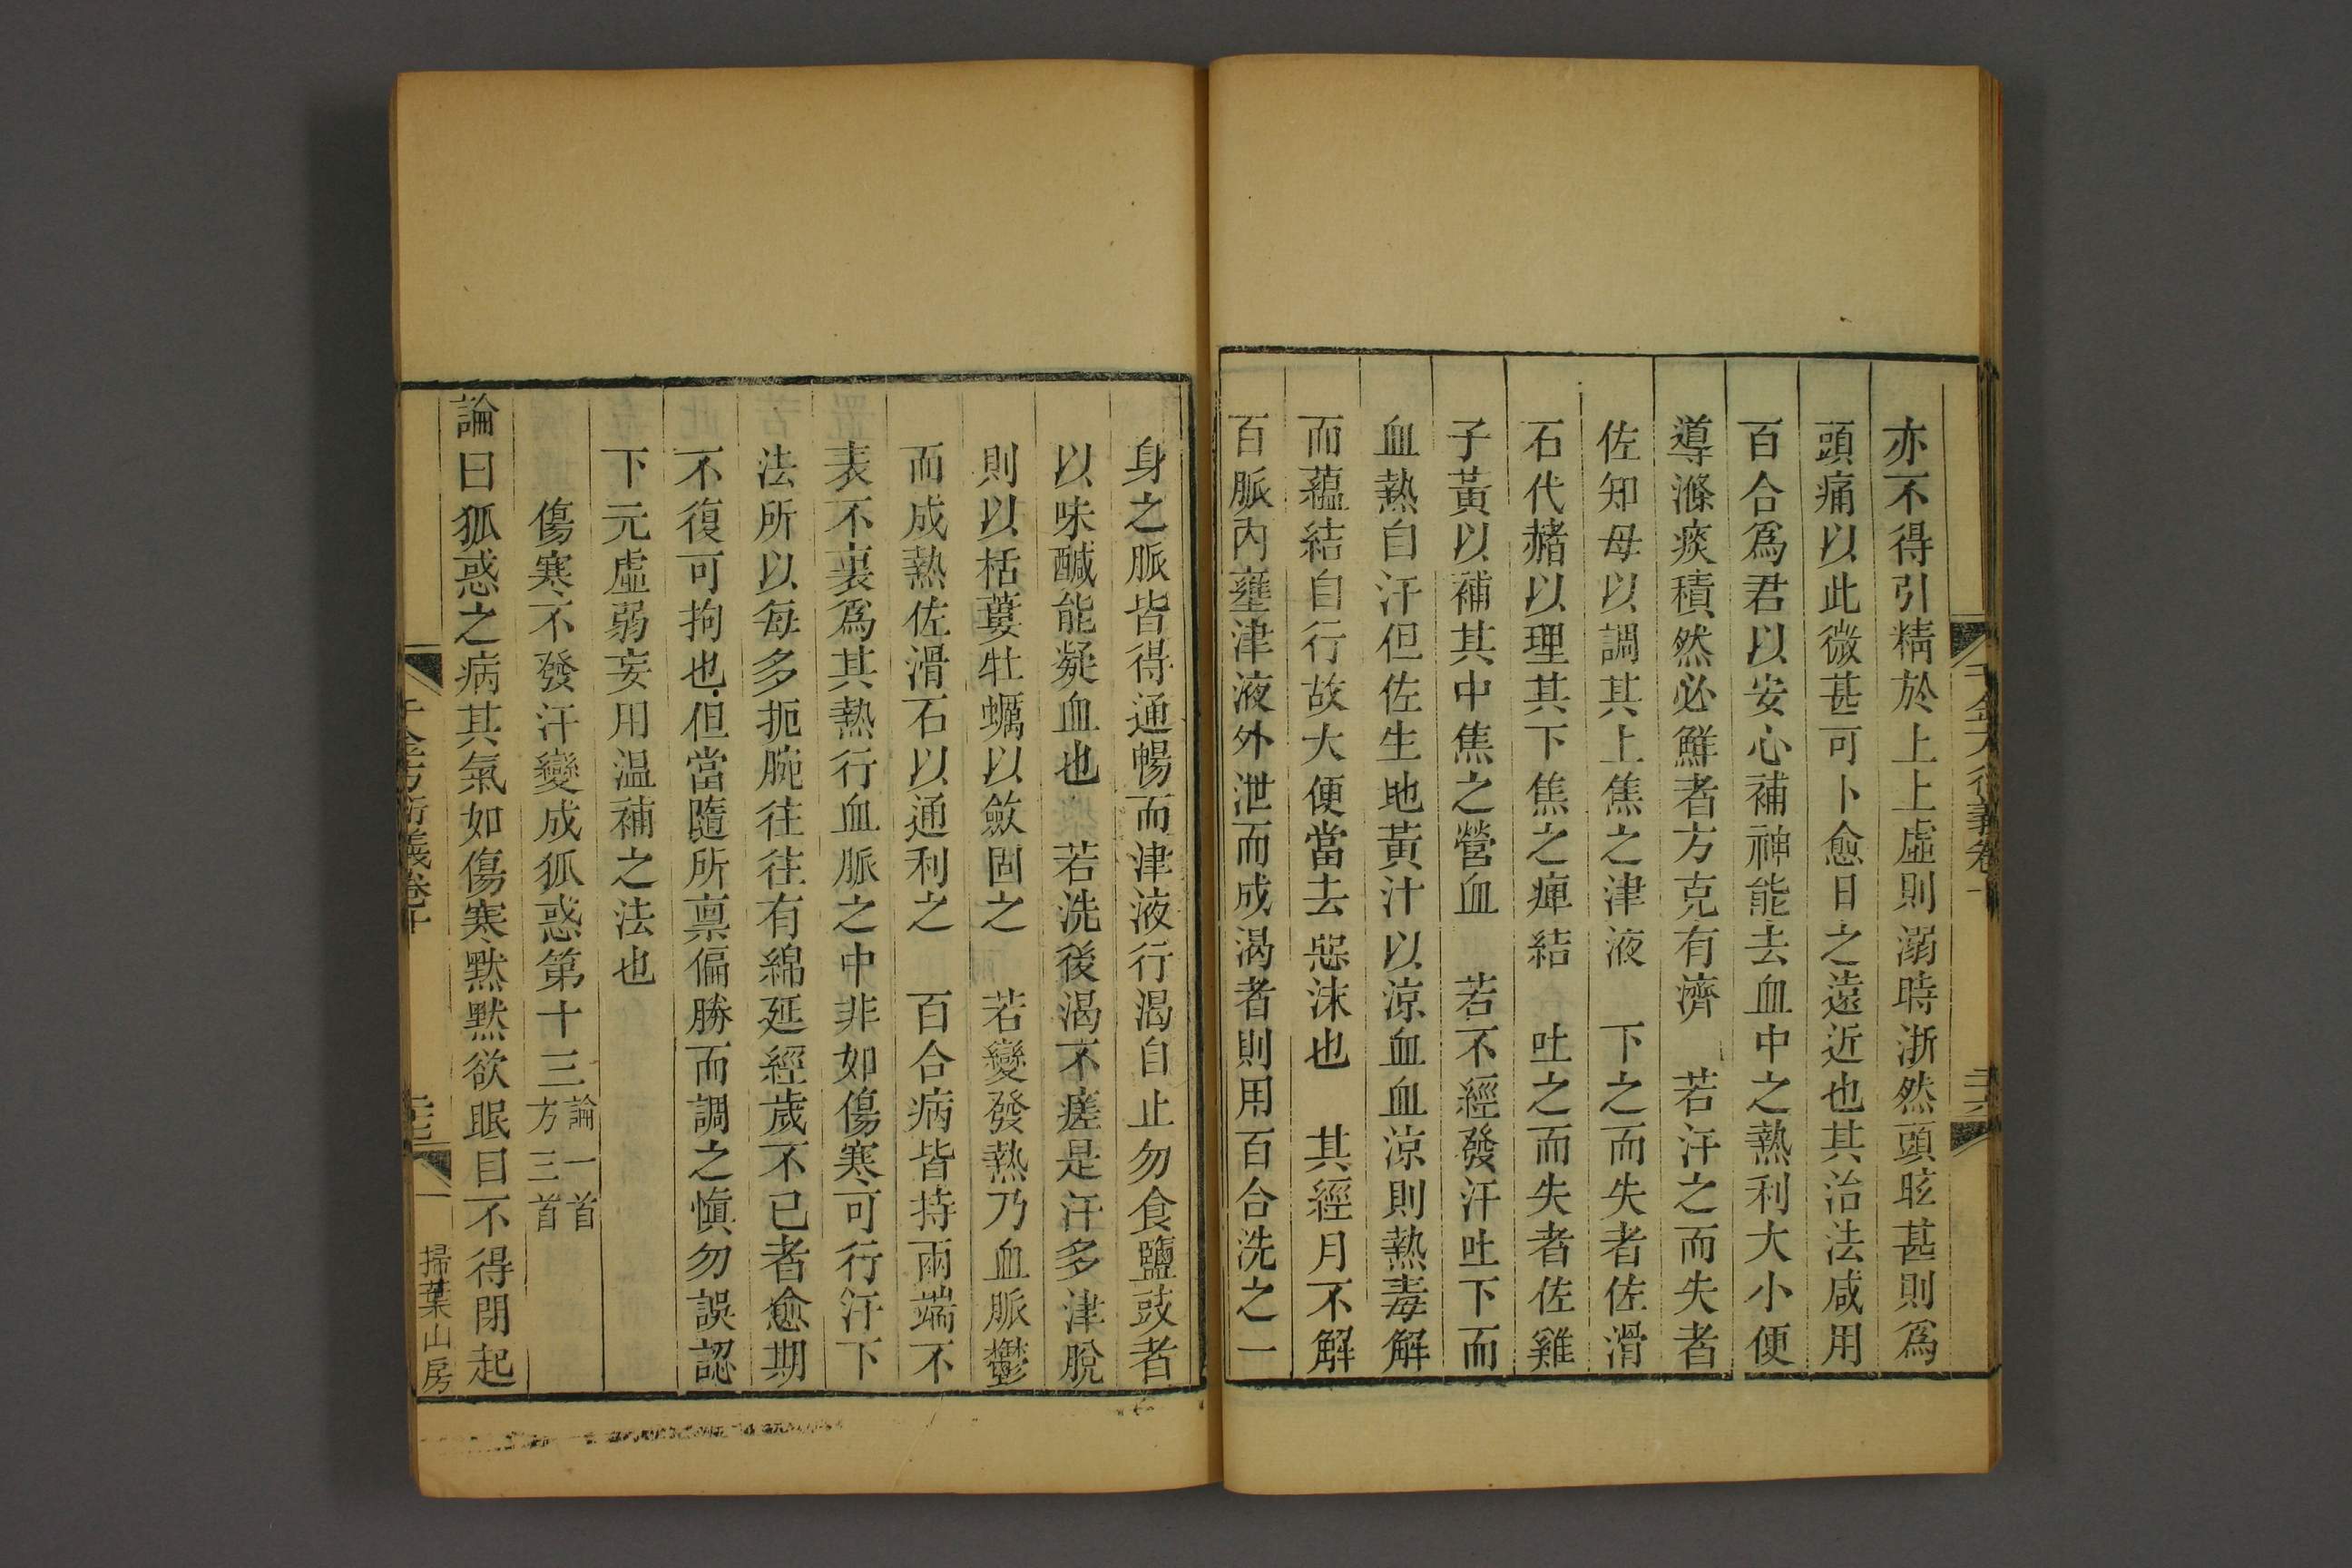 亦不得引精於上上虛則溺時淅然頭眩甚則爲
頭痛以此微甚可卜愈日之遠近也其治法咸用
百合爲君以安心補神能去血中之熱利大小便
導滌痰積然必鮮者方克有濟　若汗之而失者
佐知母以調其上焦之津液　下之而失者佐滑
石代赭以理其下焦之痺結　吐之而失者佐雞
子黃以補其中焦之營血　若不經發汗吐下而
血熱自汗但佐生地黃汁以涼血血涼則熱毒解
而蘊結自行故大便當去惡沫也　其經月不解
百脈內壅津液外泄而成渴者則用百合洗之一
身之脈皆得通暢而津液行渴自止勿食鹽豉者
以味鹹能凝血也　若洗後渴不瘥是汗多津脫
則以栝蔞牡蠣以斂固之　若變發熱乃血脈鬱
而成熱佐滑石以通利之　百合病皆持兩端不
表不裏爲其熱行血脈之中非如傷寒可行汗下
法所以每多扼腕往往有綿延經歲不已者愈期
不復可拘也但當隨所稟偏勝而調之慎勿誤認
下元虛弱妄用温補之法也
傷寒不發汗變成狐惑第十三論一首方三首
論曰狐惑之病其氣如傷寒默默欲眠目不得閉起
千金方衍義卷十
二十七
掃葉山房